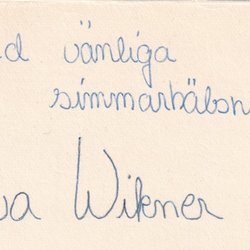 d vänliga
simmarhälsn
va Wikner